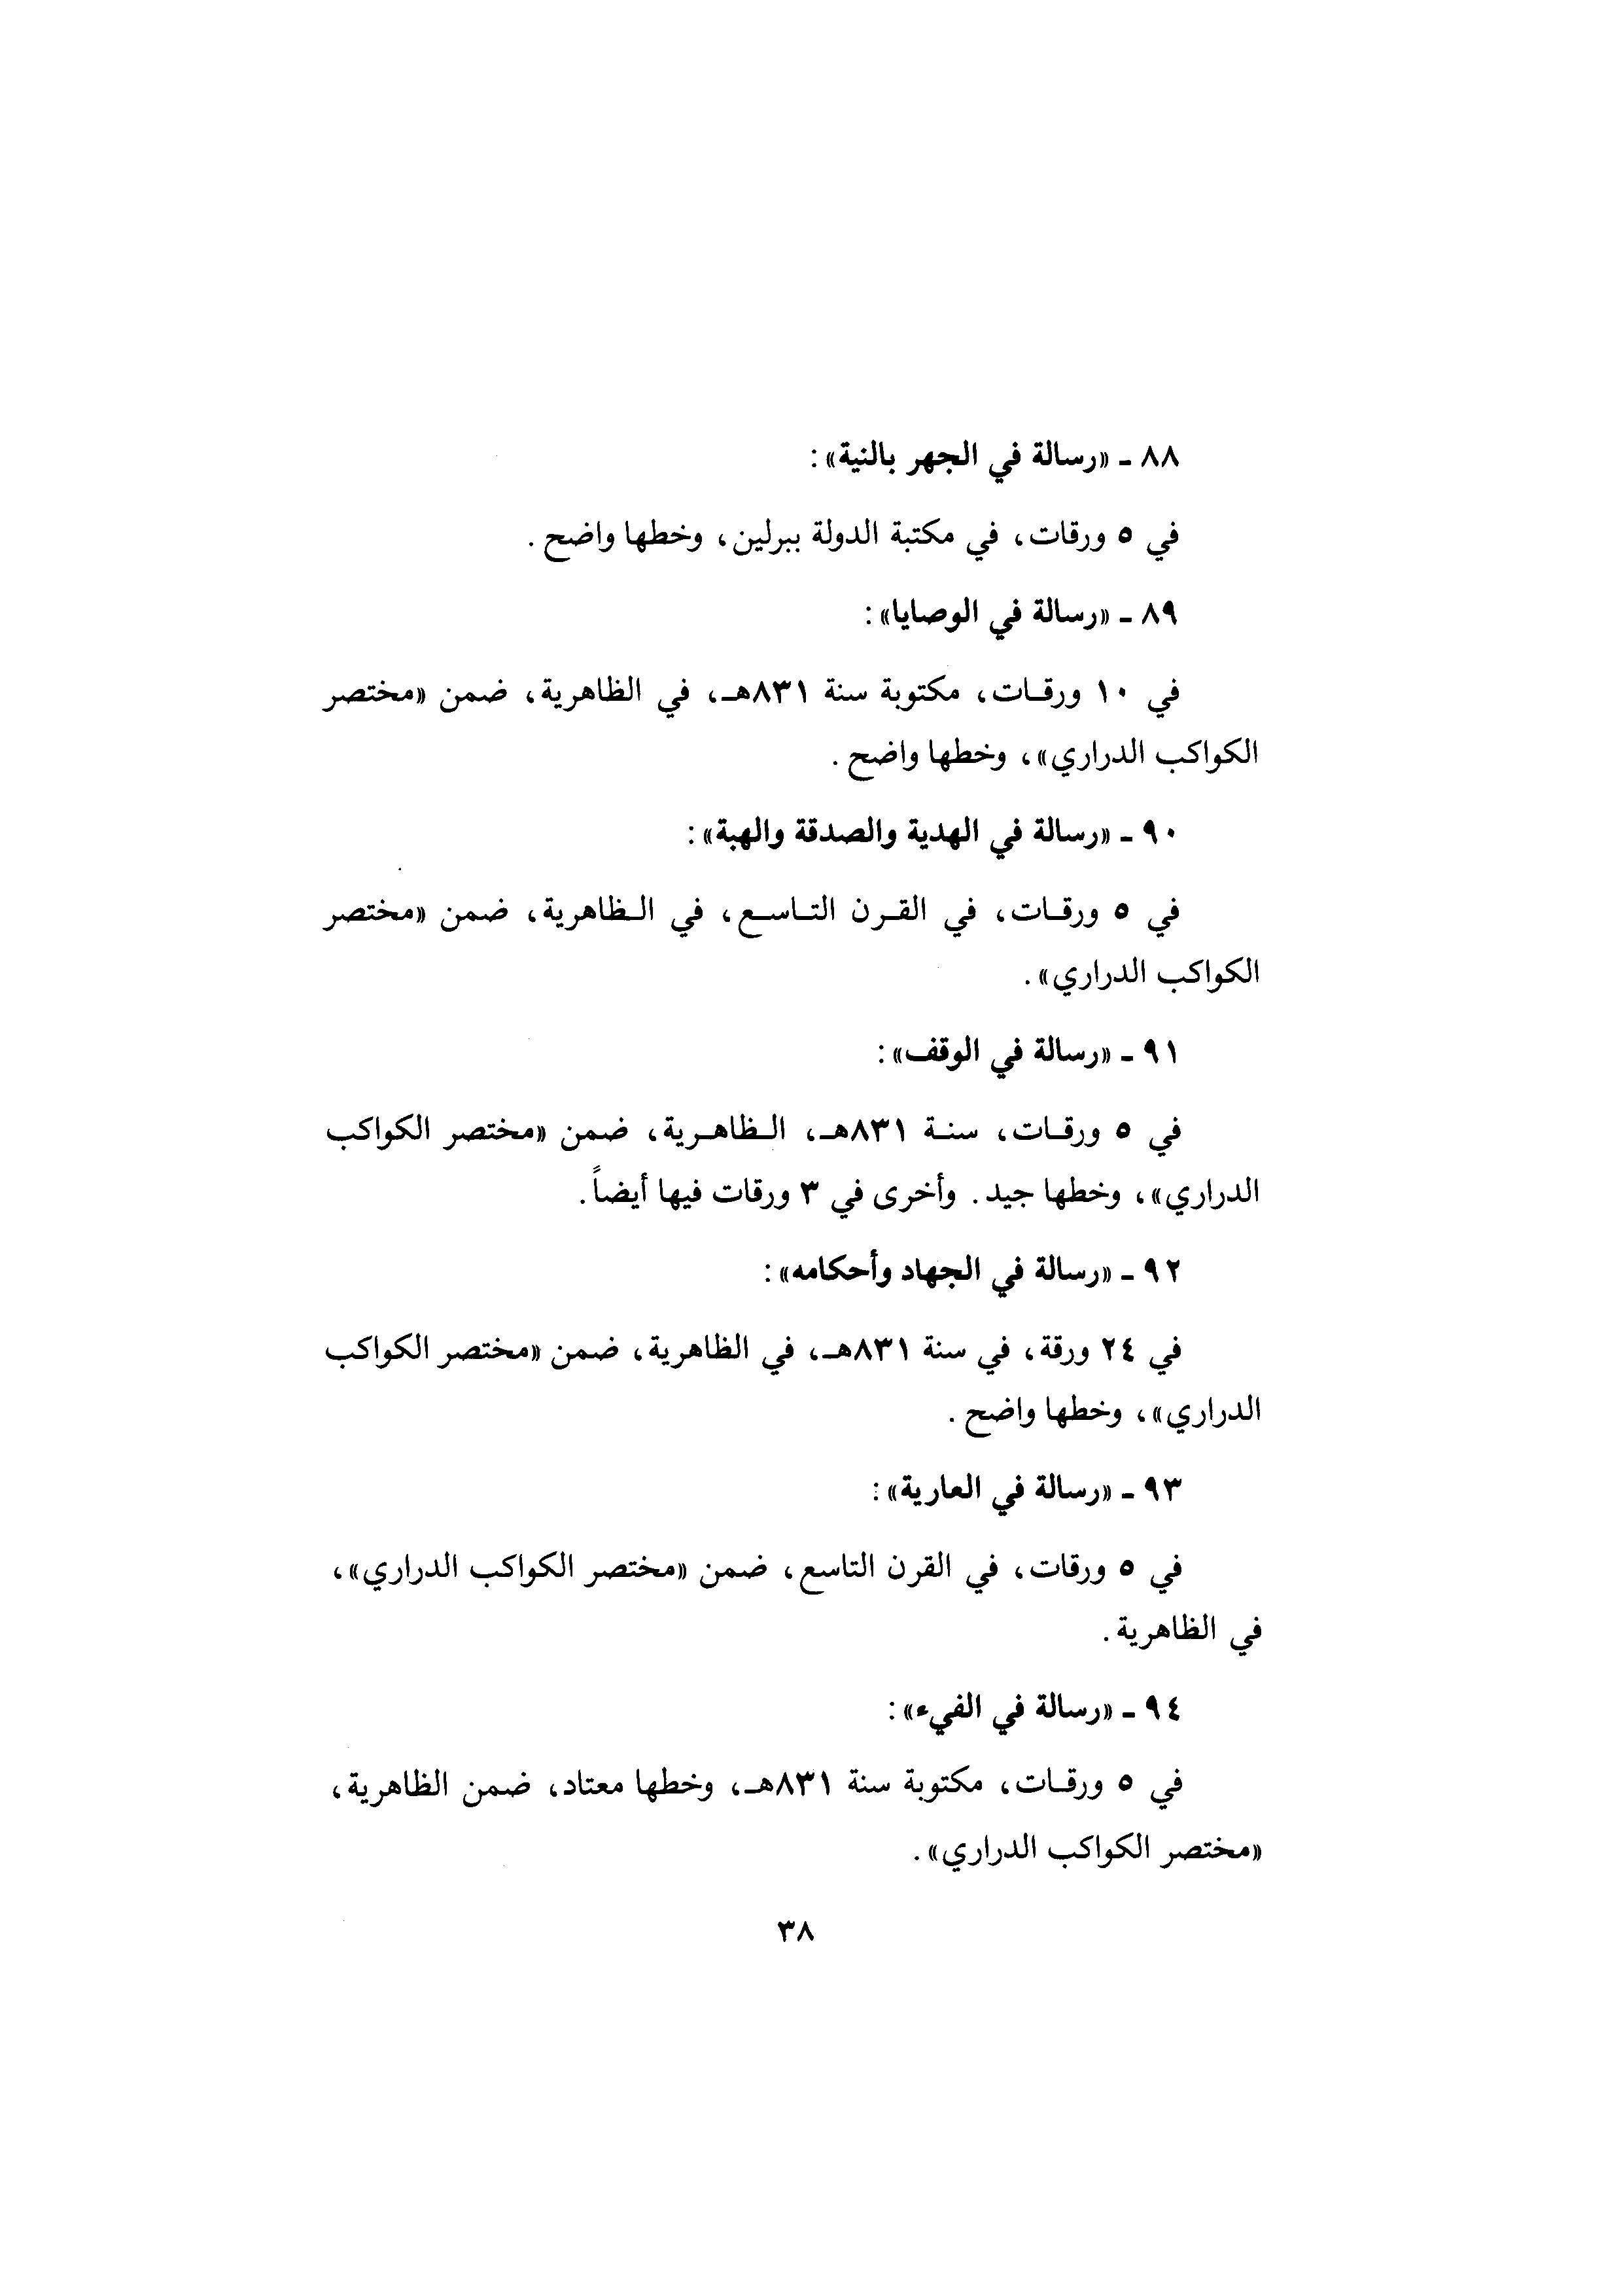 ٨٨ ـ «رسالة في الجهر بالنية»:
في ٥ ورقات، في مكتبة الدولة ببرلين، وخطها واضح.
٨٩ ـ «رسالة في الوصايا»:
في ١٠ ورقـات، مكتوبة سنة ٨٣١هـ، في الظاهرية، ضمن «مختصر
الكواكب الدراري»، وخطها واضح.
٩٠ ـ «رسالة في الهدية والصدقة والهبة»:
في ٥ ورقـات، في القـرن التـاسـع، في الـظاهرية، ضمن «مختصر
الكواكب الدراري».
٩١ ـ «رسالة في الوقف»:
في ٥ ورقـات، سنـة ٨٣١هـ، الـظاهـرية، ضمن «مختصر الكواكب
الدراري»، وخطها جيد. وأخرى في ٣ ورقات فيها أيضاً.
٩٢ ـ «رسالة في الجهاد وأحكامه»:
في ٢٤ ورقة، في سنة ٨٣١هـ، في الظاهرية، ضمن «مختصر الكواكب
الدراري»، وخطها واضح.
٩٣ ـ «رسالة في العارية»:
في ٥ ورقات، في القرن التاسع، ضمن «مختصر الكواكب الدراري»،
في الظاهرية.
٩٤ ـ «رسالة في الفيء»:
في ٥ ورقـات، مكتوبة سنة ٨٣١هـ، وخطها معتاد، ضمن الظاهرية،
«مختصر الكواكب الدراري».
٣٨